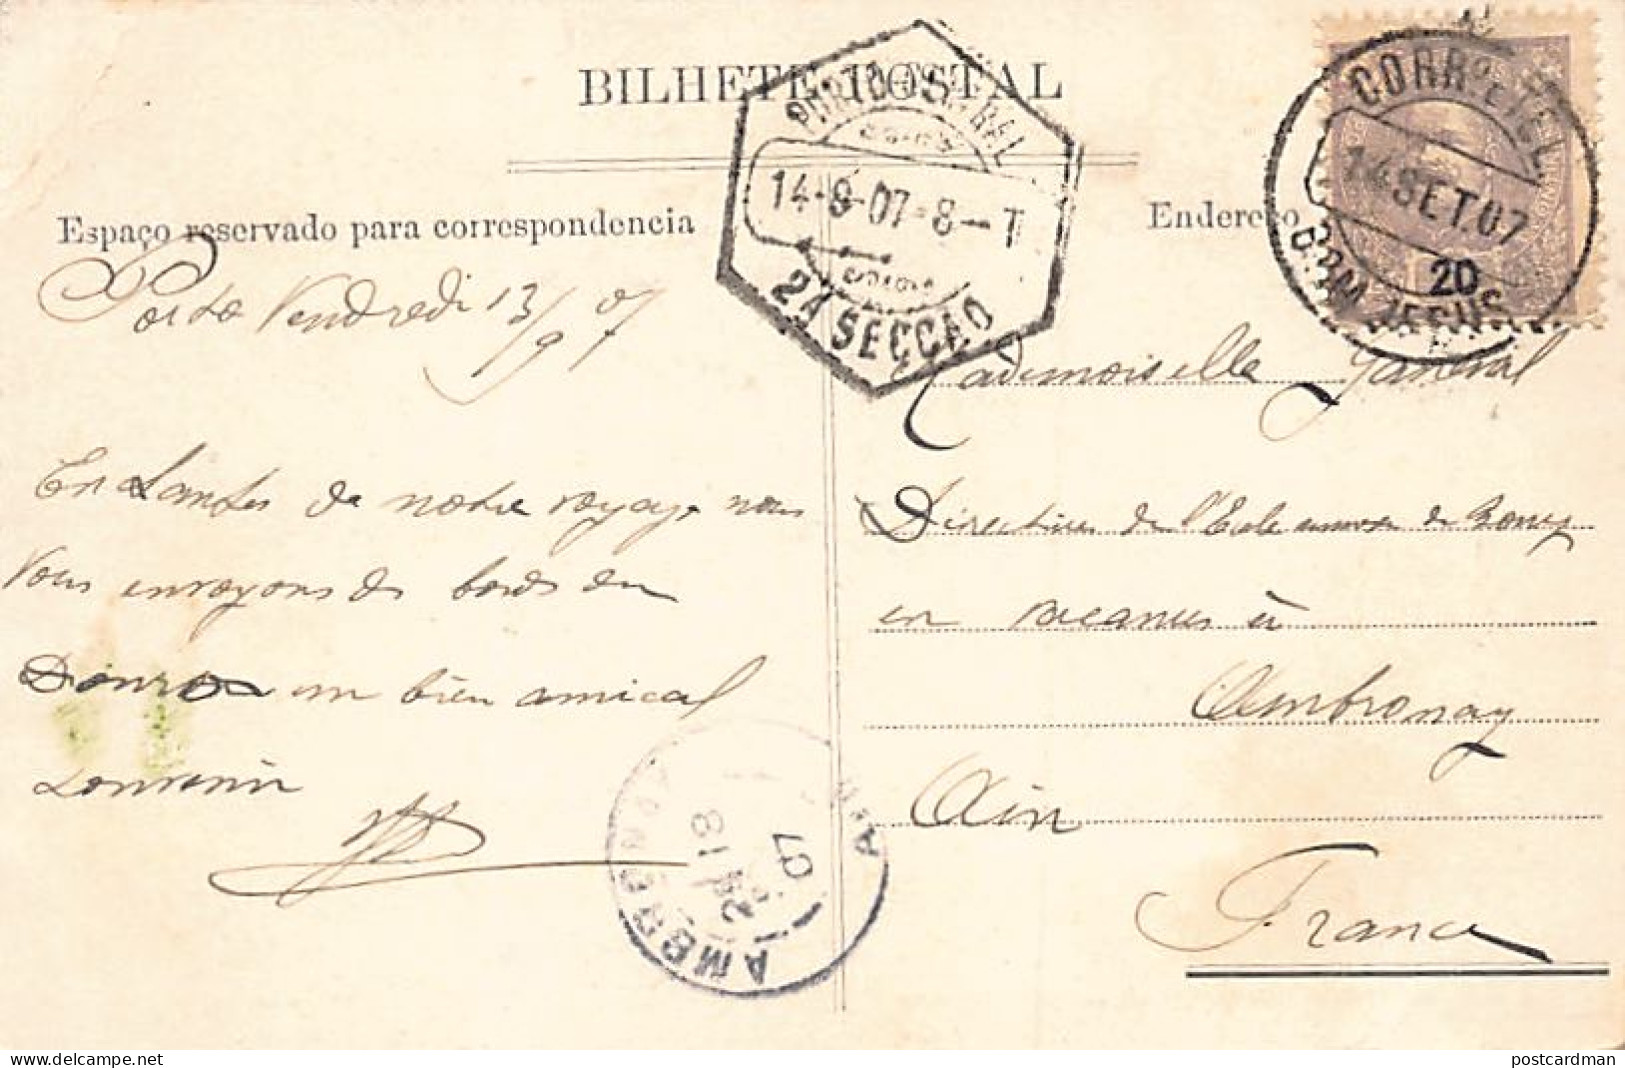 BILHETE POSTAL
PORTO CENTRAL
14-9-07-8-T
2A SECÇÃO
CORRº E TEL.
14 SET. 07
20
B. BOM JESUS
Espaço reservado para correspondencia
Endereço
Porto Vendredi 13/9 07
de notre voyage nous
Vous envoyons des bords du
Douro un bien amical
souvenir
Mademoiselle
Directrice de l'Ecole de
en vacances à
Ambronay
Ain
France
AMBRONAY
18
07
AIN
delcampe.net
postcardman